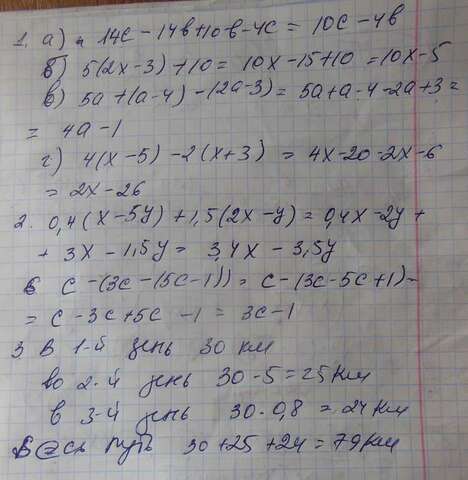 1. а) 14с - 14в + 10в - 4с = 10с - 4в
б) 5(2х - 3) + 10 = 10х - 15 + 10 = 10х - 5
в) 5а + (а - 4) - (2а - 3) = 5а + а - 4 - 2а + 3 =
= 4а - 1
г) 4(х - 5) - 2(х + 3) = 4х - 20 - 2х - 6
= 2х - 26
2. 0,4(х - 5у) + 1,5(2х - у) = 0,4х - 2у +
+ 3х - 1,5у = 3,4х - 3,5у
б с - (3с - (5с - 1)) = с - (3с - 5с + 1) -
= с - 3с + 5с - 1 = 3с - 1
3 В 1-й день 30 км
во 2-й день 30 - 5 = 25 км
в 3-й день 30 · 0,8 = 24 км
Весь путь 30 + 25 + 24 = 79 км